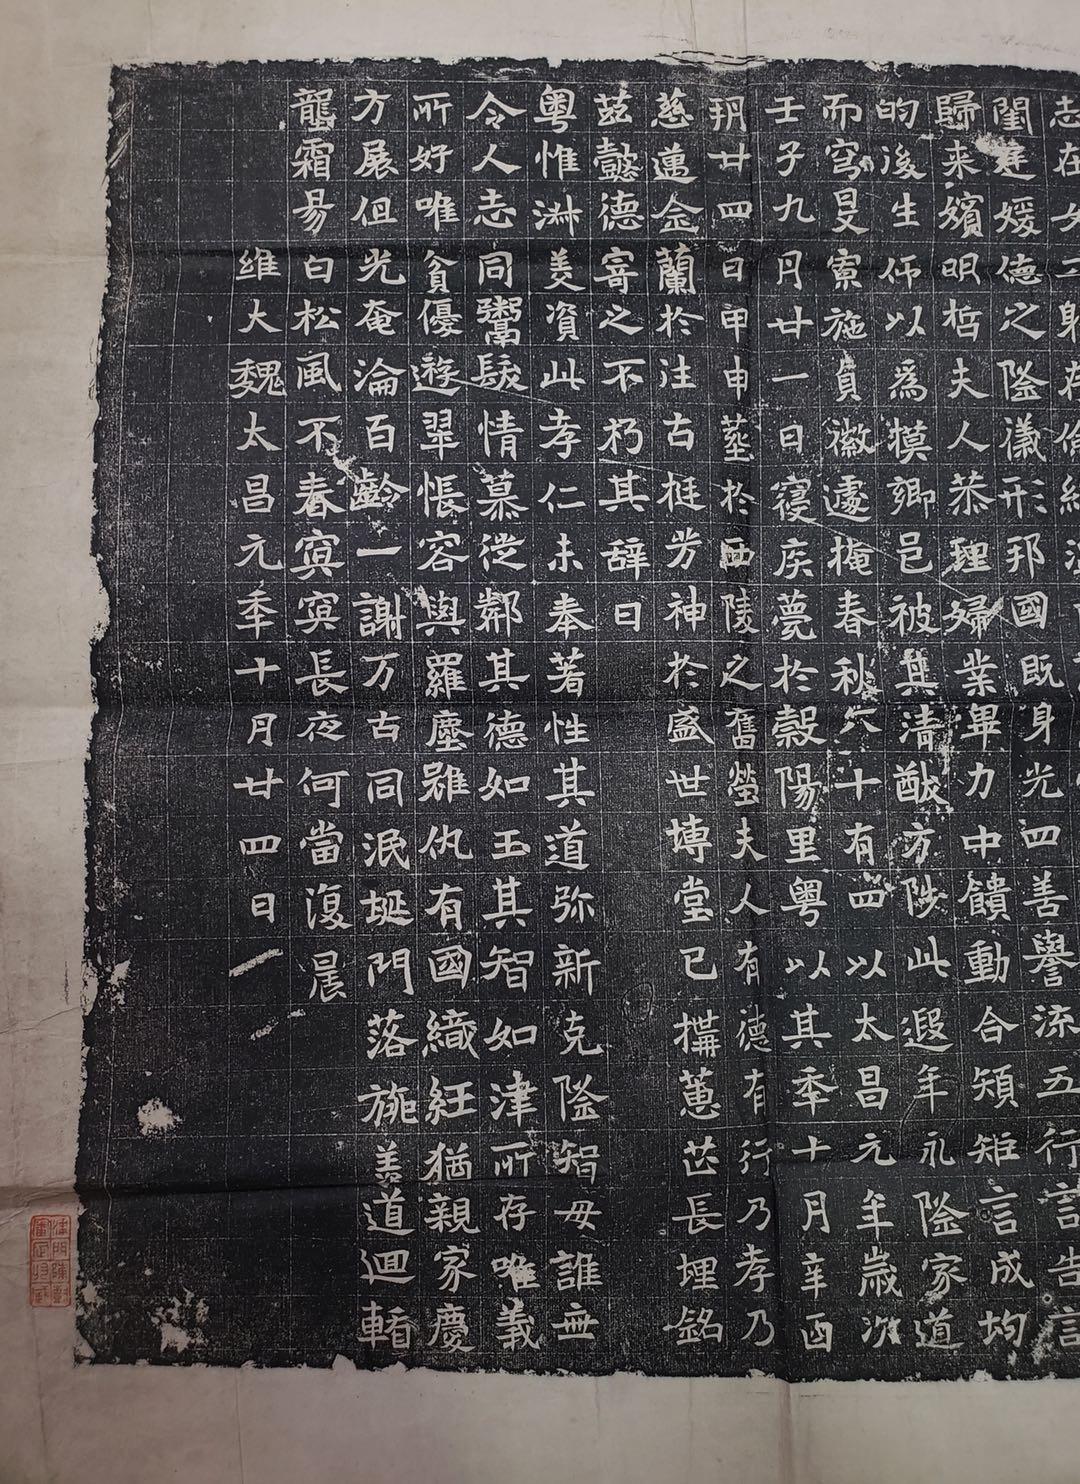 志在女工躬存儉約
閨莛媛德之隆瀸形邦國既身光四善譽流五行言告言
歸来嬪明哲夫人恭理婦業畢力中饋動合規矩言成均
的後生仰以為摸鄉邑被其清猷方陟此遐年永隆家道
而穹旻寡施貞徽遽掩春秋六十有四以太昌元年歲次
壬子九月廿一日寑疾薨於穀陽里粤以其季十月辛酉
玥廿四日甲申塟於西陵之舊塋夫人有德有行乃孝乃
慈邁金蘭於注古挺芳神於盛世塼堂已構蕙芷長埋銘
茲懿德寄之不朽其辞曰
粤惟淋美資此孝仁未奉著性其道弥新克隆智毋誰無
令人志同鬻髮情慕從鄰其德如玉其智如津所存唯義
所好唯貧優遊翠帳容與羅塵雖仇有國織紝猶親家慶
方展但光奄淪百齡一謝万古同泯埏門落旐羡道迴輴
壟霜易白松風不春冥冥長夜何當復晨
維大魏太昌元季十月廿四日